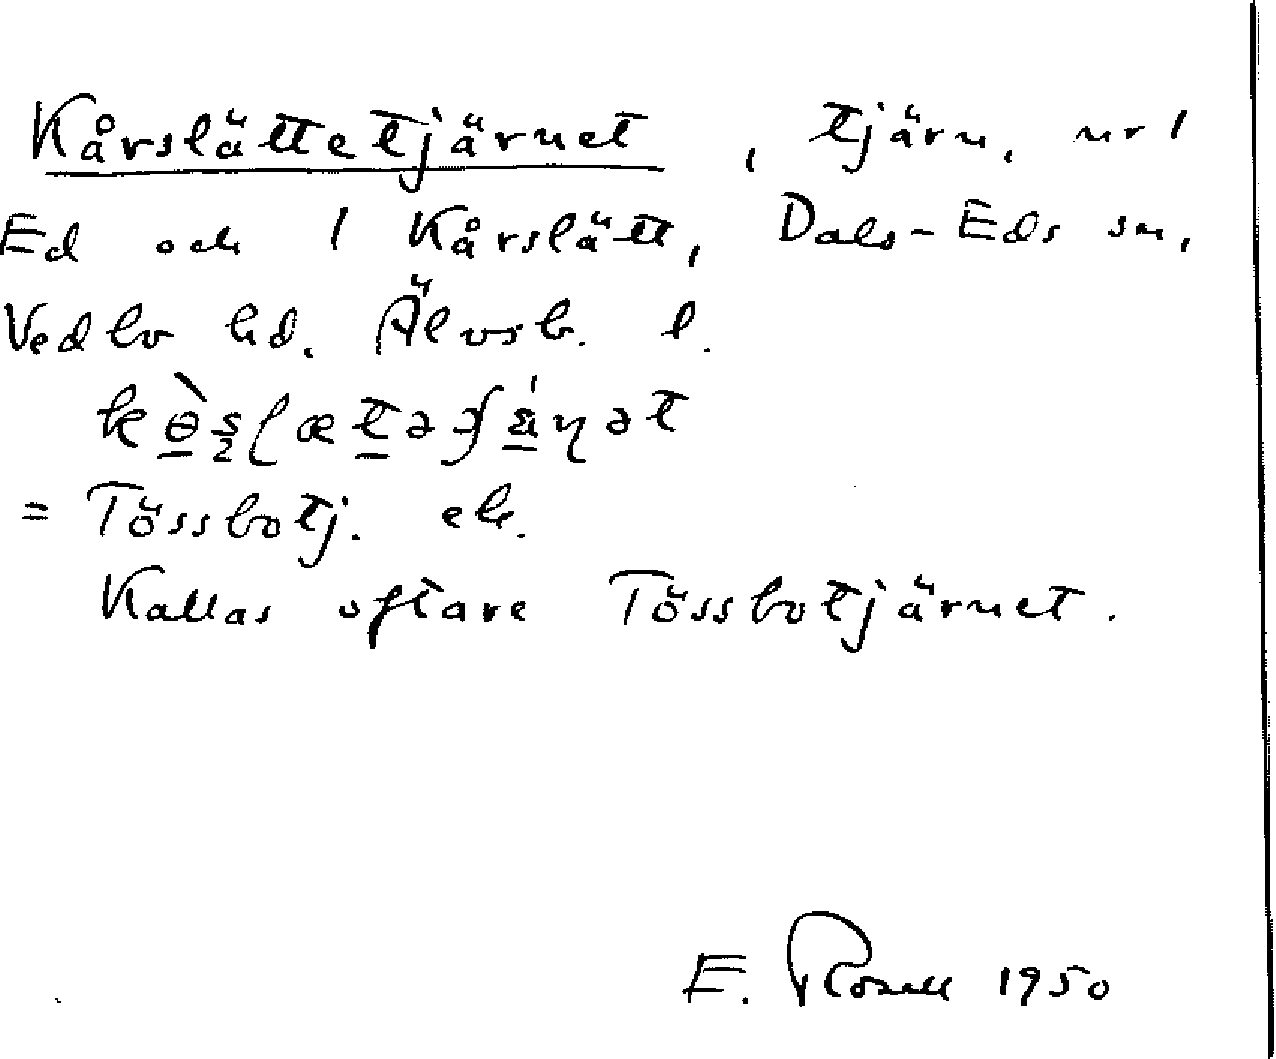 Kårslättetjärnet, tjärn, nr 1
Ed och 1 Kårslätt, Dals-Eds sn,
Vedbo hd. Älvsb. l.
= Tössbotj. ek.
Kallas oftare Tössbotjärnet.
E. Rosell 1950